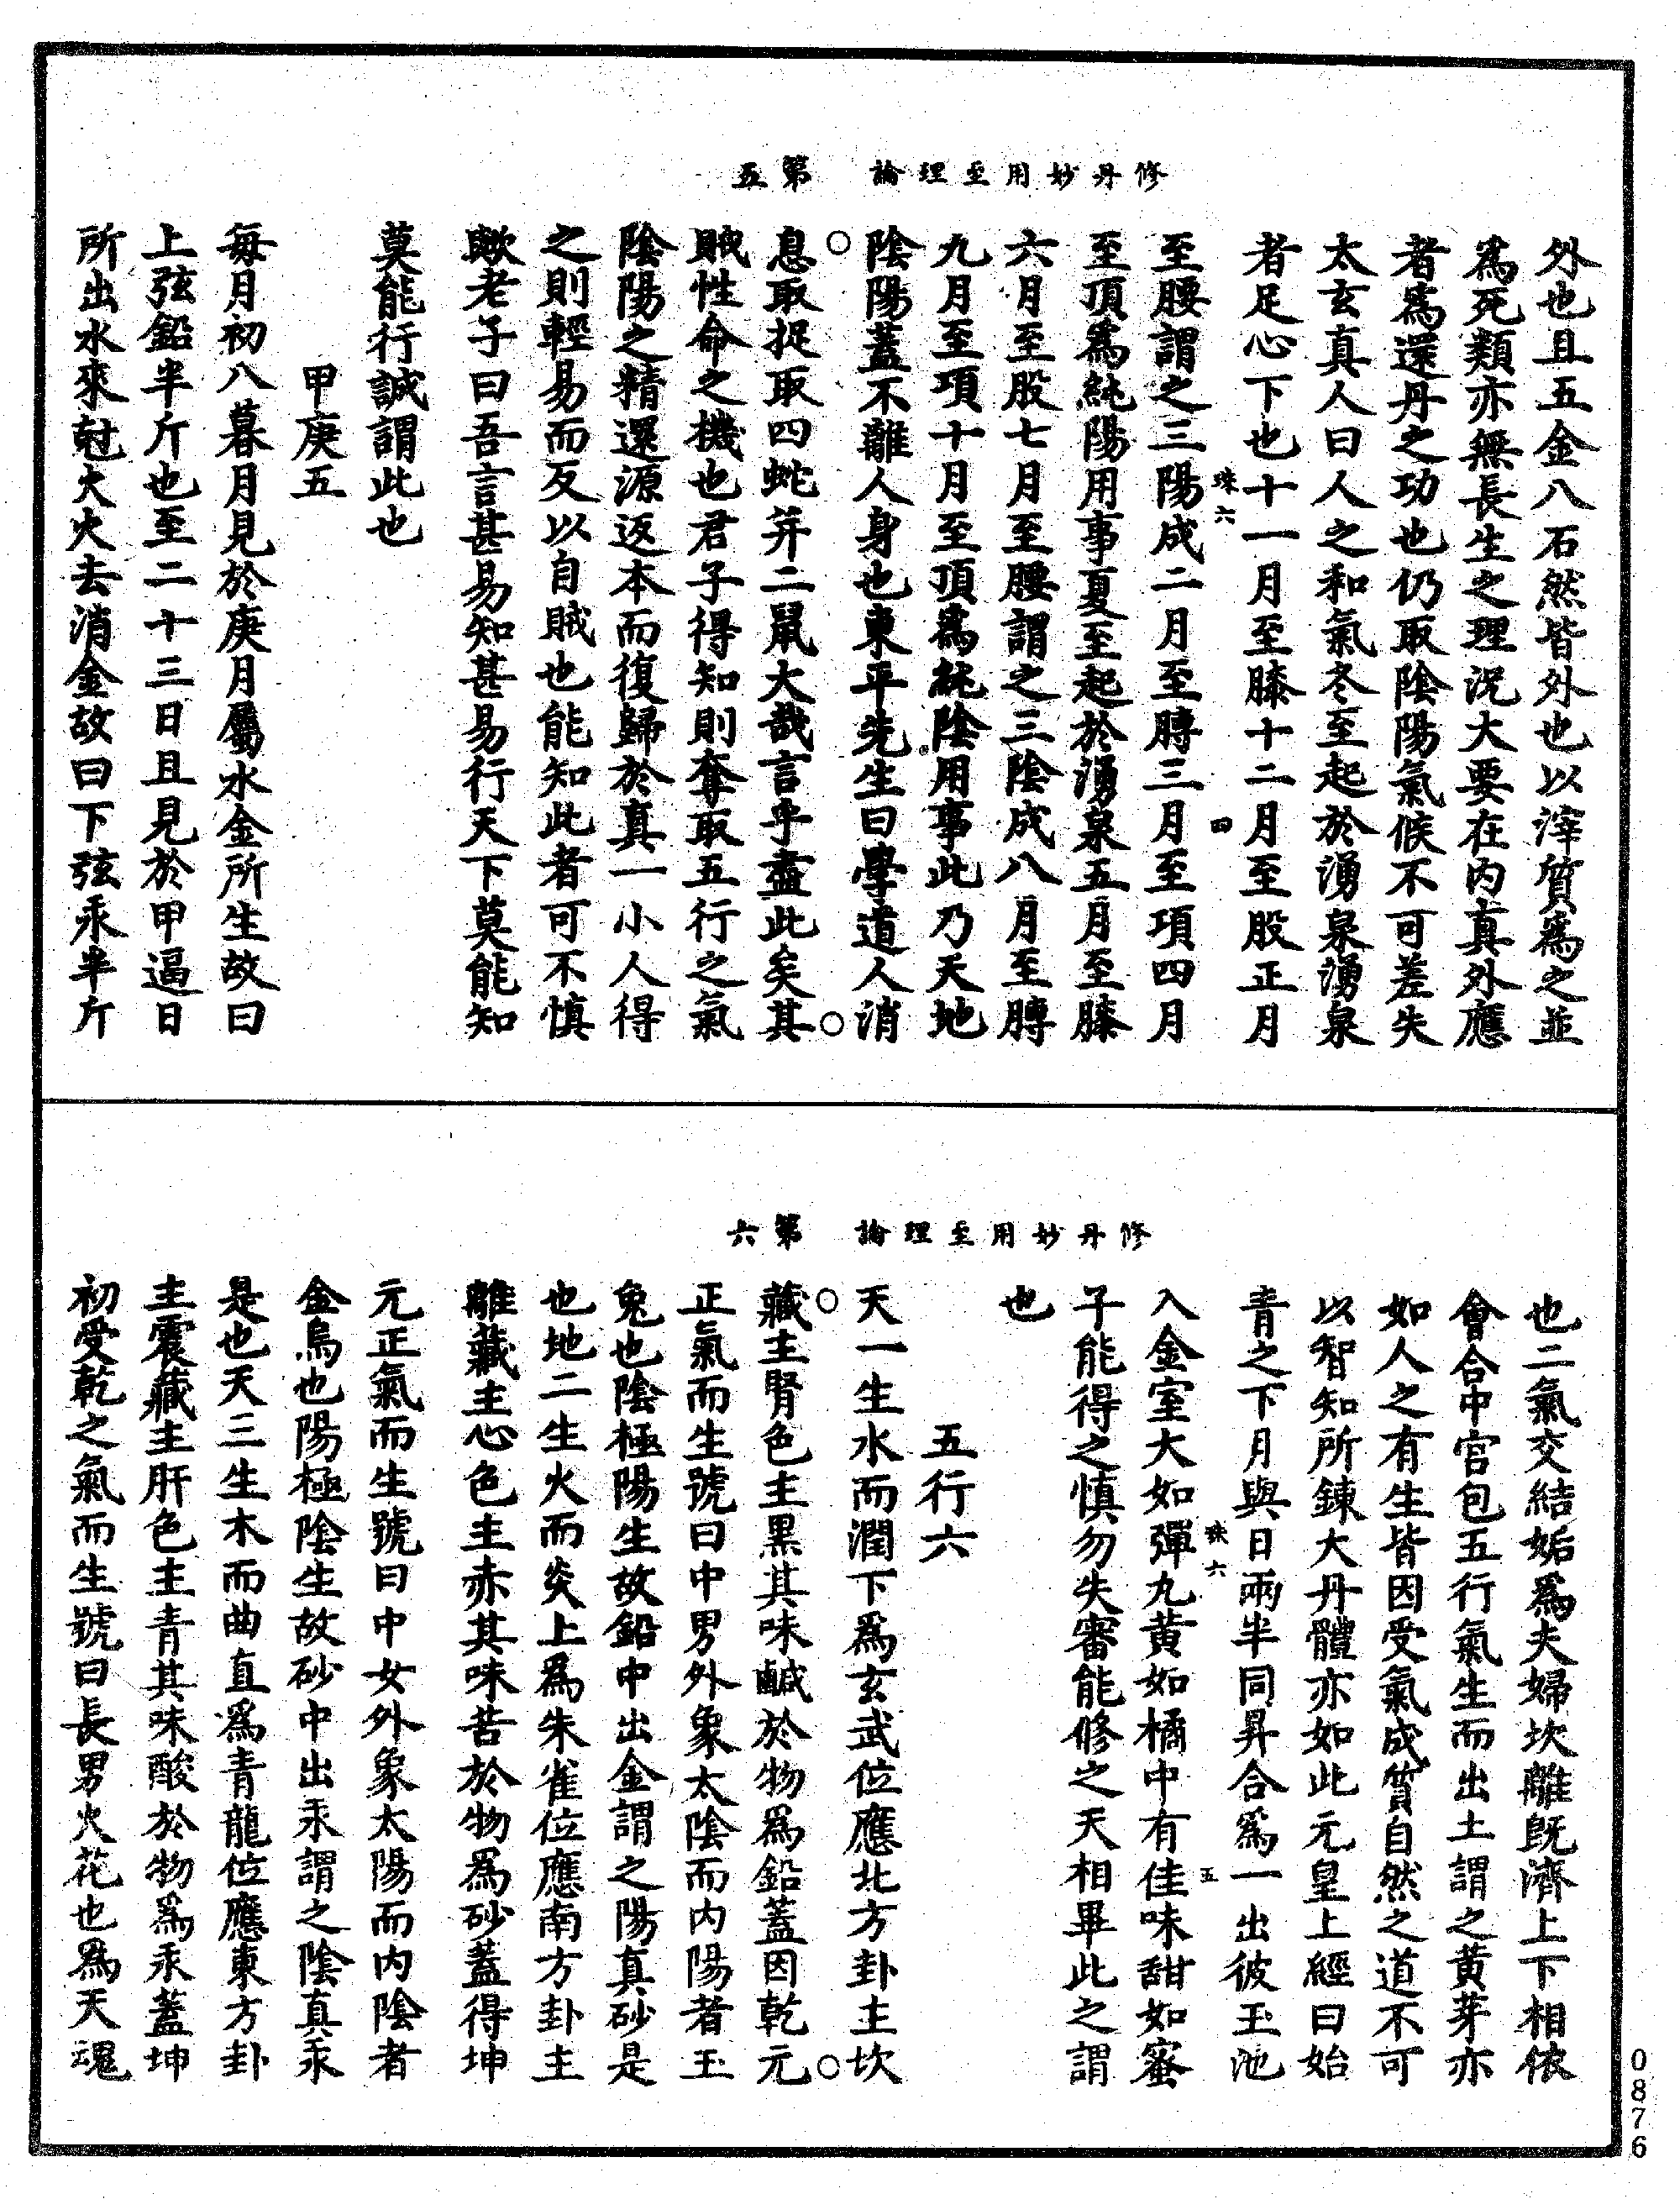 修丹妙用至理論　第五
外也且五金八石然皆外也以滓質爲之並
爲死類亦無長生之理況大要在内真外應
者爲還丹之功也仍取陰陽氣候不可差失
太玄真人曰人之和氣冬至起於湧泉湧泉
者足心下也十一月至膝十二月至股正月
珠六　四
至腰謂之三陽成二月至膊三月至項四月
至頂爲純陽用事夏至起於湧泉五月至膝
六月至股七月至腰謂之三陰成八月至膊
九月至項十月至頂爲純陰用事此乃天地
陰陽蓋不離人身也東平先生曰學道人消
息取捉取四蛇并二鼠大哉言乎盡此矣其
賊性命之機也君子得知則奪取五行之氣
陰陽之精還源返本而復歸於真一小人得
之則輕易而反以自賊也能知此者可不慎
歟老子曰吾言甚易知甚易行天下莫能知
莫能行誠謂此也
甲庚五
每月初八暮月見於庚月屬水金所生故曰
上弦鉛半斤也至二十三日且見於甲逼日
所出水來尅火火去消金故曰下弦汞半斤
修丹妙用至理論　第六
也二氣交結姤爲夫婦坎離既濟上下相依
會合中宫包五行氣生而出土謂之黄芽亦
如人之有生皆因受氣成質自然之道不可
以智知所鍊大丹體亦如此元皇上經曰始
青之下月與日兩半同昇合爲一出彼玉池
珠六　五
入金室大如彈丸黄如橘中有佳味甜如蜜
子能得之慎勿失審能修之天相畢此之謂
也
五行六
天一生水而潤下爲玄武位應北方卦主坎
藏主腎色主黑其味鹹於物爲鉛蓋因乾元
正氣而生號曰中男外象太陰而内陽者玉
兔也陰極陽生故鉛中出金謂之陽真砂是
也地二生火而炎上爲朱雀位應南方卦主
離藏主心色主赤其味苦於物爲砂蓋得坤
元正氣而生號曰中女外象太陽而内陰者
金烏也陽極陰生故砂中出汞謂之陰真汞
是也天三生木而曲直爲青龍位應東方卦
主震藏主肝色主青其味酸於物爲汞蓋坤
初受乾之氣而生號曰長男火花也爲天魂
0876